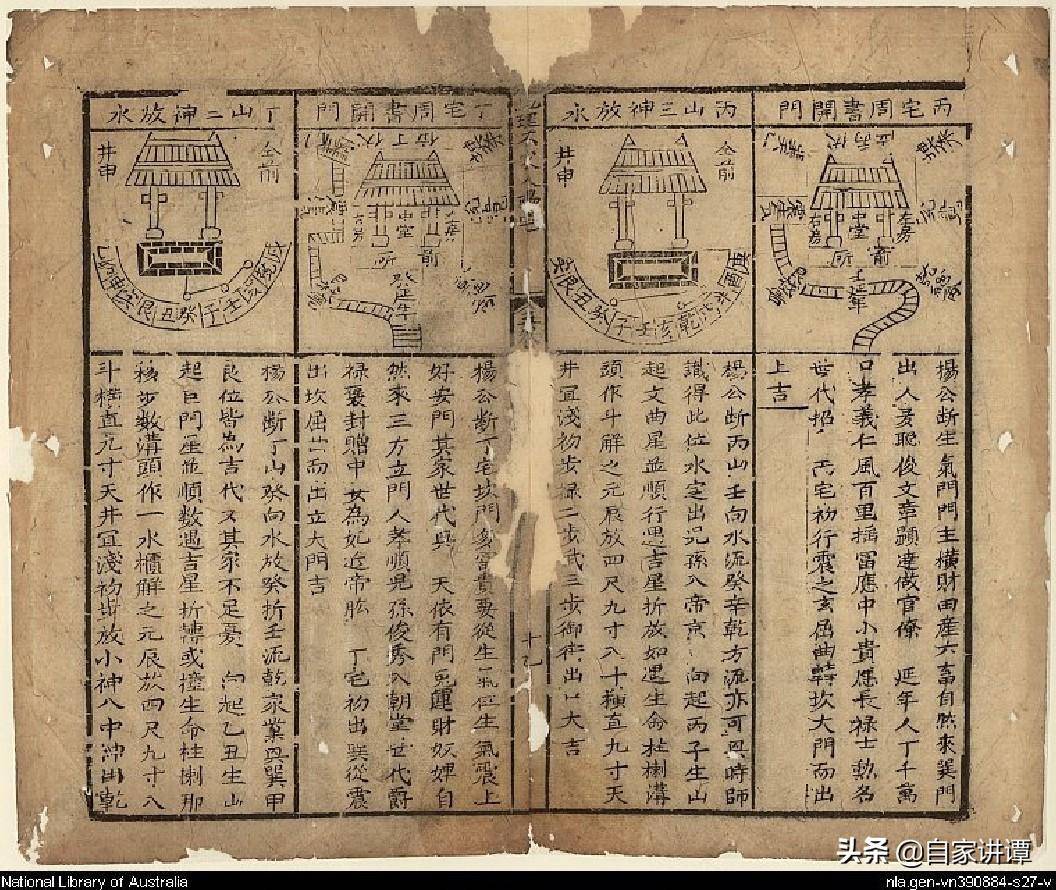 丙宅周書開門
左房
中堂
前
所
楊公断生氣門門主橫財田產六畜自然來巽門
出人多聰俊文章顕達做官僚 延年人丁千萬
口孝義仁風百里揺富應中小貴應長禄士勲名
世代招 丙宅初行震之玄屈曲轉坎大門而出
上吉
丙山三神放水
金前
井甲
楊公断丙山壬向水流癸辛乾方流亦可興時師
識得此位水定出兒孫入帝京 向起丙子生山
起文曲星並順行遇吉星折放如遇生命柱捌溝
頭作斗解之元辰放四尺九寸八十横直九寸天
井宜淺初步禄二步武三步御街出口大吉
十九
丁宅周書開門
中堂
前
所
楊公断丁宅坎門多富貴要從生氣位生氣震上
好安門其家世代興 天依有門兎運財奴婢自
然來三方立門人孝順兒孫俊秀入朝堂世代爵
禄褒封贈中女為妃近帝肱 丁宅初出巽從震
出坎屈曲而出立大門吉
丁山二神放水
金前
井申
楊公断丁山癸向水放癸折壬流乾家業興巽甲
艮位皆為吉代又其家不足憂 向起乙丑生山
起巨門星並順数遇吉星折轉或撞生命柱捌那
移步数溝頭作一水櫃解之元辰放四尺九寸八
斗横直九寸天井宜淺初步放小神八中神出乾
National Library of Australia
nla.gen-vn390884-s27-v
头条 @自家讲谭